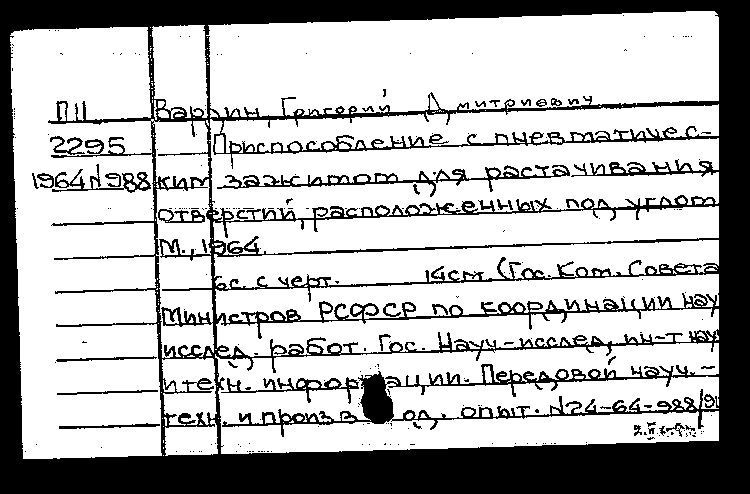 П11 Вардин, Григорий Дмитриевич
2295 Приспособление с пневматичес-
1964 N988 ким зажимом для растачивания
отверстий, расположенных под углом
М., 1964.
6с. с черт. 14см. (Гос. Ком. Совета
Министров РСФСР по координации нау
исслед. работ. Гос. Науч-исслед. ин-т нау
и техн. информации. Передовой науч.-
техн. и произв од. опыт. N24-64-988/